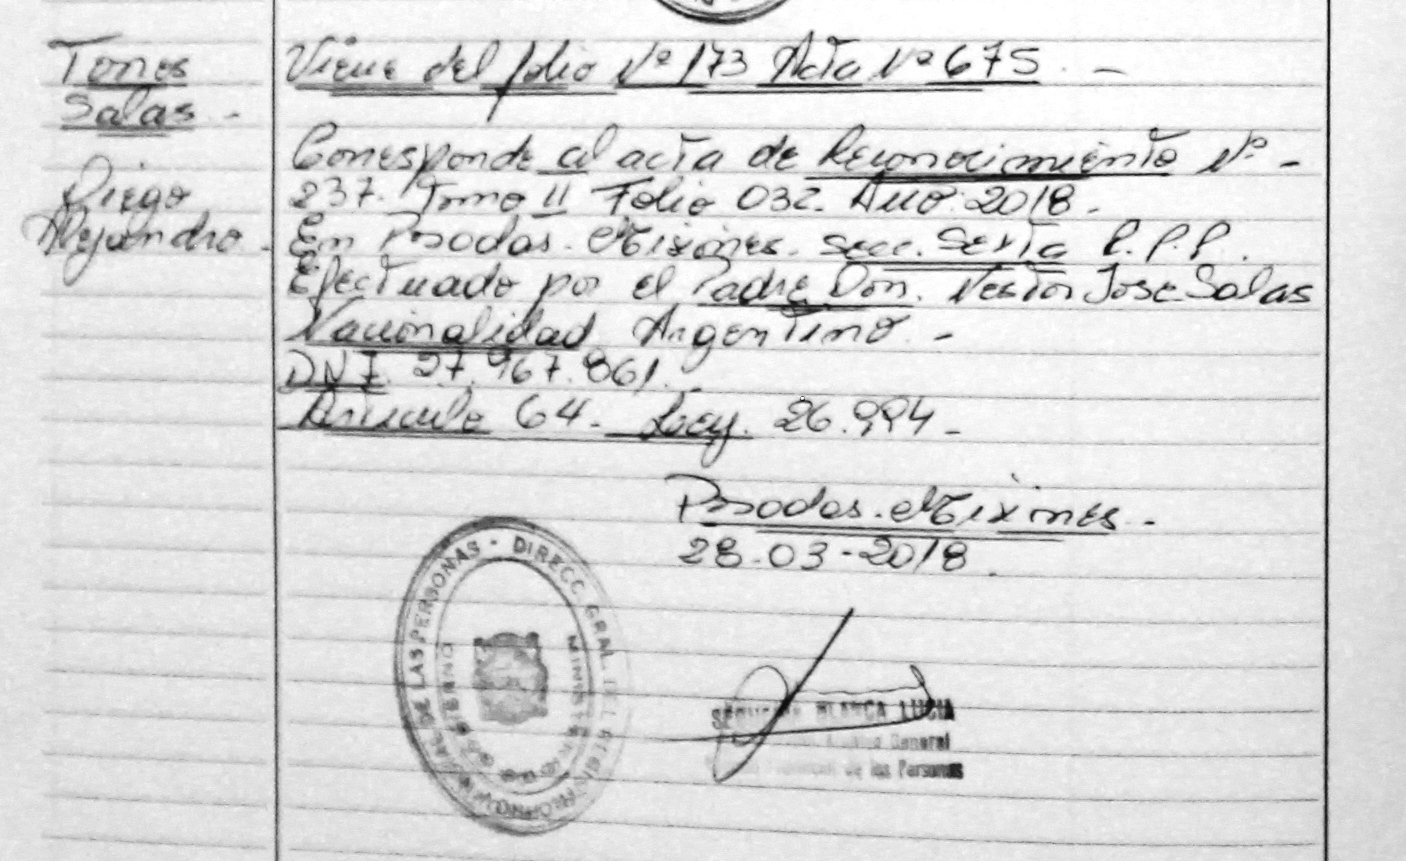 Torres
Salas -
Diego
Alejandro -
Viene del folio Nº 173 Acta Nº 675. -
Corresponde al acta de Reconocimiento Nº -
237. Tomo II Folio 032. Año 2018 -
En Posadas. Misiones. secc. Sexta R.P.P.
Efectuado por el Padre Don. Nestor Jose Salas
Nacionalidad Argentino -
DNI 27.967.861.
Articulo 64 - Ley. 26.994 -
Posadas. Misiones -
28-03-2018.
DIRECC. GRAL. DEL REGISTRO PROVINCIAL DE LAS PERSONAS -
MINISTERIO DE GOBIERNO
BLANCA LUCIA
General
de las Personas